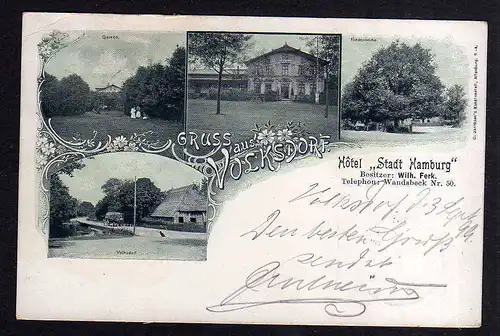 Garten.
Friedenseiche
GRUSS aus
VOLKSDORF
Hôtel „Stadt Hamburg"
Besitzer: Wilh. Ferk.
Telephon: Wandsbeck Nr. 50.
Volksdorf
Volksdorf d. 3 Sept 99.
Den besten Gruß
sendet